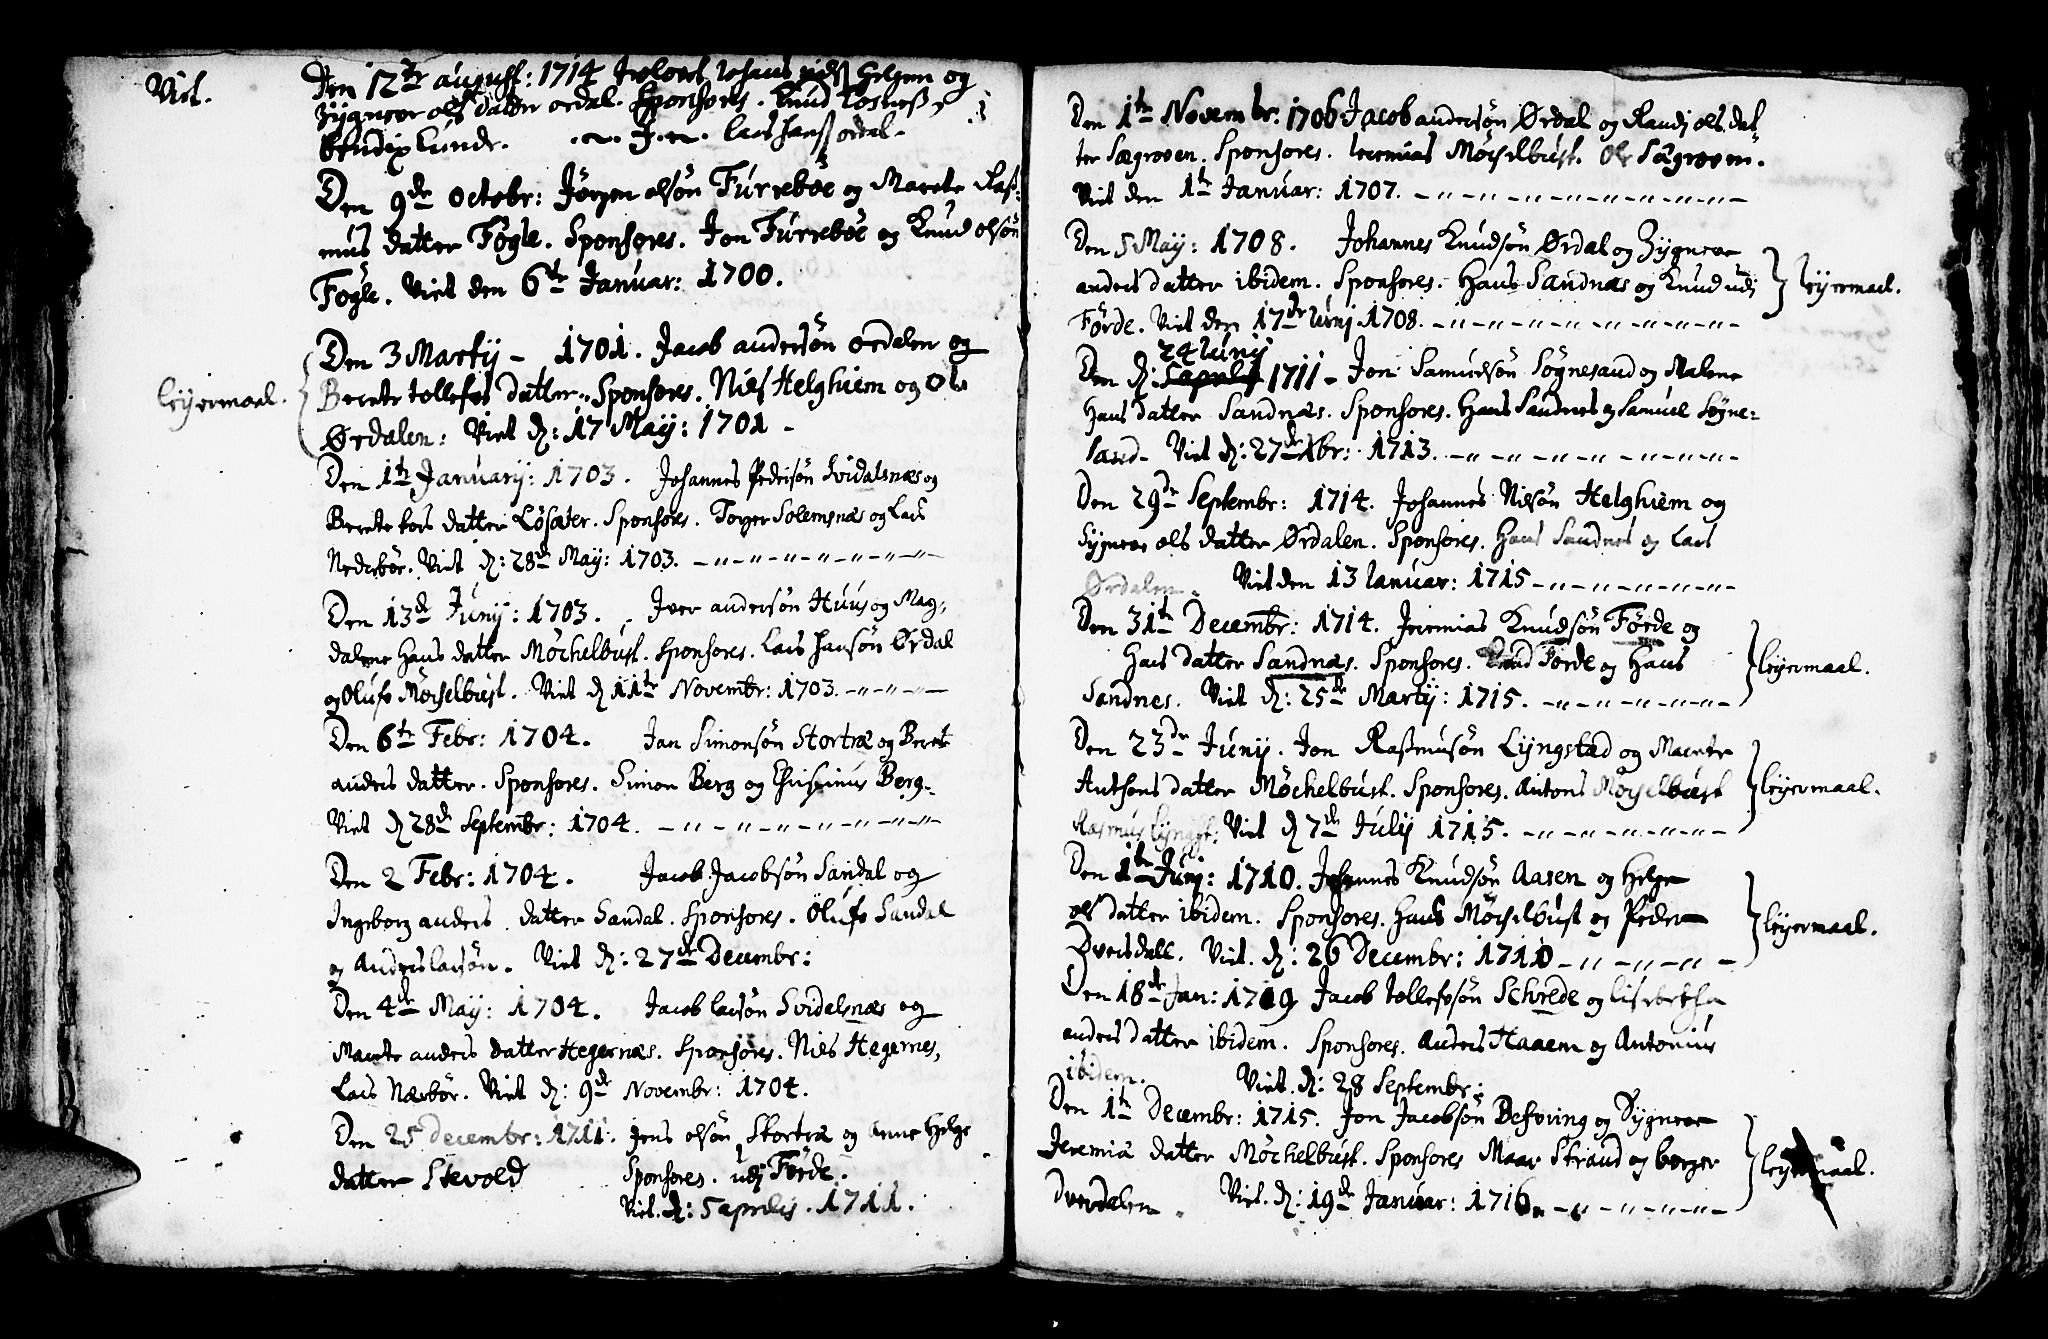 Viet.
Den 12te august: 1714 Johans Helgem og
Zygneve ols datter ordal. Sponsores. Knud
bendix Lunde. Lars Hanss ordal.
Den 9de Octobr: Jørgen olsön Fúrreböe og Marete Rass-
mus datter Fögle. Sponsores. Jon Fúrreböe og Knud olsön
Fögle. Viet den 6te Januar: 1700.
Den 3 Martij - 1701. Jacob andersön ordalen og
Berete tollefs datter. Sponsores. Niels Helghiem og Ole
Ørdalen: Viet d: 17 Maij: 1701 -
leijermaal.
Den 1te Januarij: 1703. Johannes Pedersön Svidalsnæs og
Berete lars datter Lösæter. Sponsores. Torger Solemsnæs og Lars
Nedrebör. Viet d: 28de Maij: 1703.
Den 13de Junij: 1703. Iver andersön Huus og Mag-
dalene Hans datter Möchelbust. Sponsores. Lars hansön Ørdal
og Oluf Möchelbust. Viet d 11te Novembr: 1703.
Den 6te Febr: 1704. Jan Simonsön Stortræ og Beret
anders datter. Sponsores. Simon Berg og Berg.
Viet d 28de Septembr: 1704.
Den 2 Febr: 1704. Jacob Jacobsön Sandal og
Ingeborg anders datter Sandal. Sponsores. Oluf Sandal
og Anders larsön. Viet d: 27de Decembr:
Den 4de Maij: 1704. Jacob larsön Svidalsnæs og
Marete anders datter Hegernæs. Sponsores. Niels Hegernes,
Lars Nærbör. Viet d: 9de Novembr: 1704.
Den 25 Decembr: 1711. Jens olsön Stortræ og Anne Helge
datter Stevold Sponsores. udj Förde.
Viet. d: 5 aprilis. 1711.
Den 1te Novembr. 1706 Jacob andersön Ørdal og Randj ols. dat-
ter Sægroven. Sponsores. Ieremias Möchelbust. Ole Sægroven.
Viet den 1te Januar: 1707.
Den 5 Maij: 1708. Johannes Knudsön Ørdal og Zygneve
anders datter ibidem. Sponsores. Hans Sandnæs og Knud udj
Förde. Viet den 17de Iunj 1708.
leijermaal.
24 Iunij
Den d: 5 aprilj 1711 - Jon Samuelsön Sögnesand og Malene
Hans datter Sandnæs. Sponsores. Hans Sandnes og Samuel Sögne-
sand. Viet d: 27de br: 1713.
Den 29de Septembr: 1714. Johannes Nilsön Helghiem og
Sygneve ols datter Ørdalen. Sponsores. Hans Sandnes og Lars
Ørdalen. Viet den 13 Ianuar: 1715
Den 31te Decembr: 1714. Jeremias Knudsön Förde og
Hans datter Sandnæs. Sponsores. Knud Förde og Hans
Sandnes. Viet d: 25de Martij: 1715.
leijermaal.
Den 23de Junij. Jon Rasmusön Lijngstad og Marete
Antons datter Möchelbust. Sponsores. Antons Möchelbust
Rasmus Lijngst: Viet d 7de Julij 1715.
leijermaal.
Den 1te Junj: 1710. Johannes Knudsön Aasen og Helge
ols datter ibidem. Sponsores. Hans Möchelbust og Peder
Dversdall. Viet. d: 26 Decembr: 1710
leijermaal.
Den 18de Jan: 1719 Jacob tollefsön Schrede og Lisebetha
anders datter ibidem. Sponsores. Anders Haaem og Antonius
ibidem. Viet. d: 28 Septembr:
Den 1te Decembr: 1715. Jon Jacobsön Befring og Sygneve
Jeremia datter Möchelbust. Sponsores Maar Strand og börger
Dverdalen. Viet. d: 19de Januar: 1716.
leijermaal.